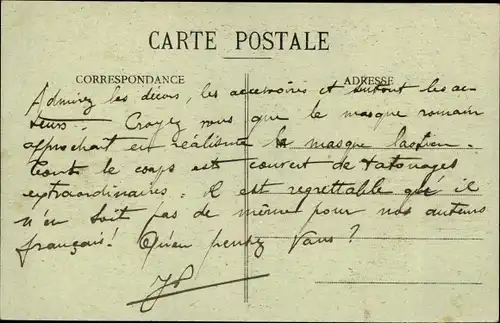 CARTE POSTALE
CORRESPONDANCE
ADRESSE
Admirez les décors, les accessoires et surtout les ac-
teurs. Croyez vous que le masque romain
approchait en réalisme le masque
Tout le corps est couvert de tatouages
extraordinaires. Il est regrettable qu'il
n'en soit pas de même pour nos auteurs
français! Qu'en pensez Vous?